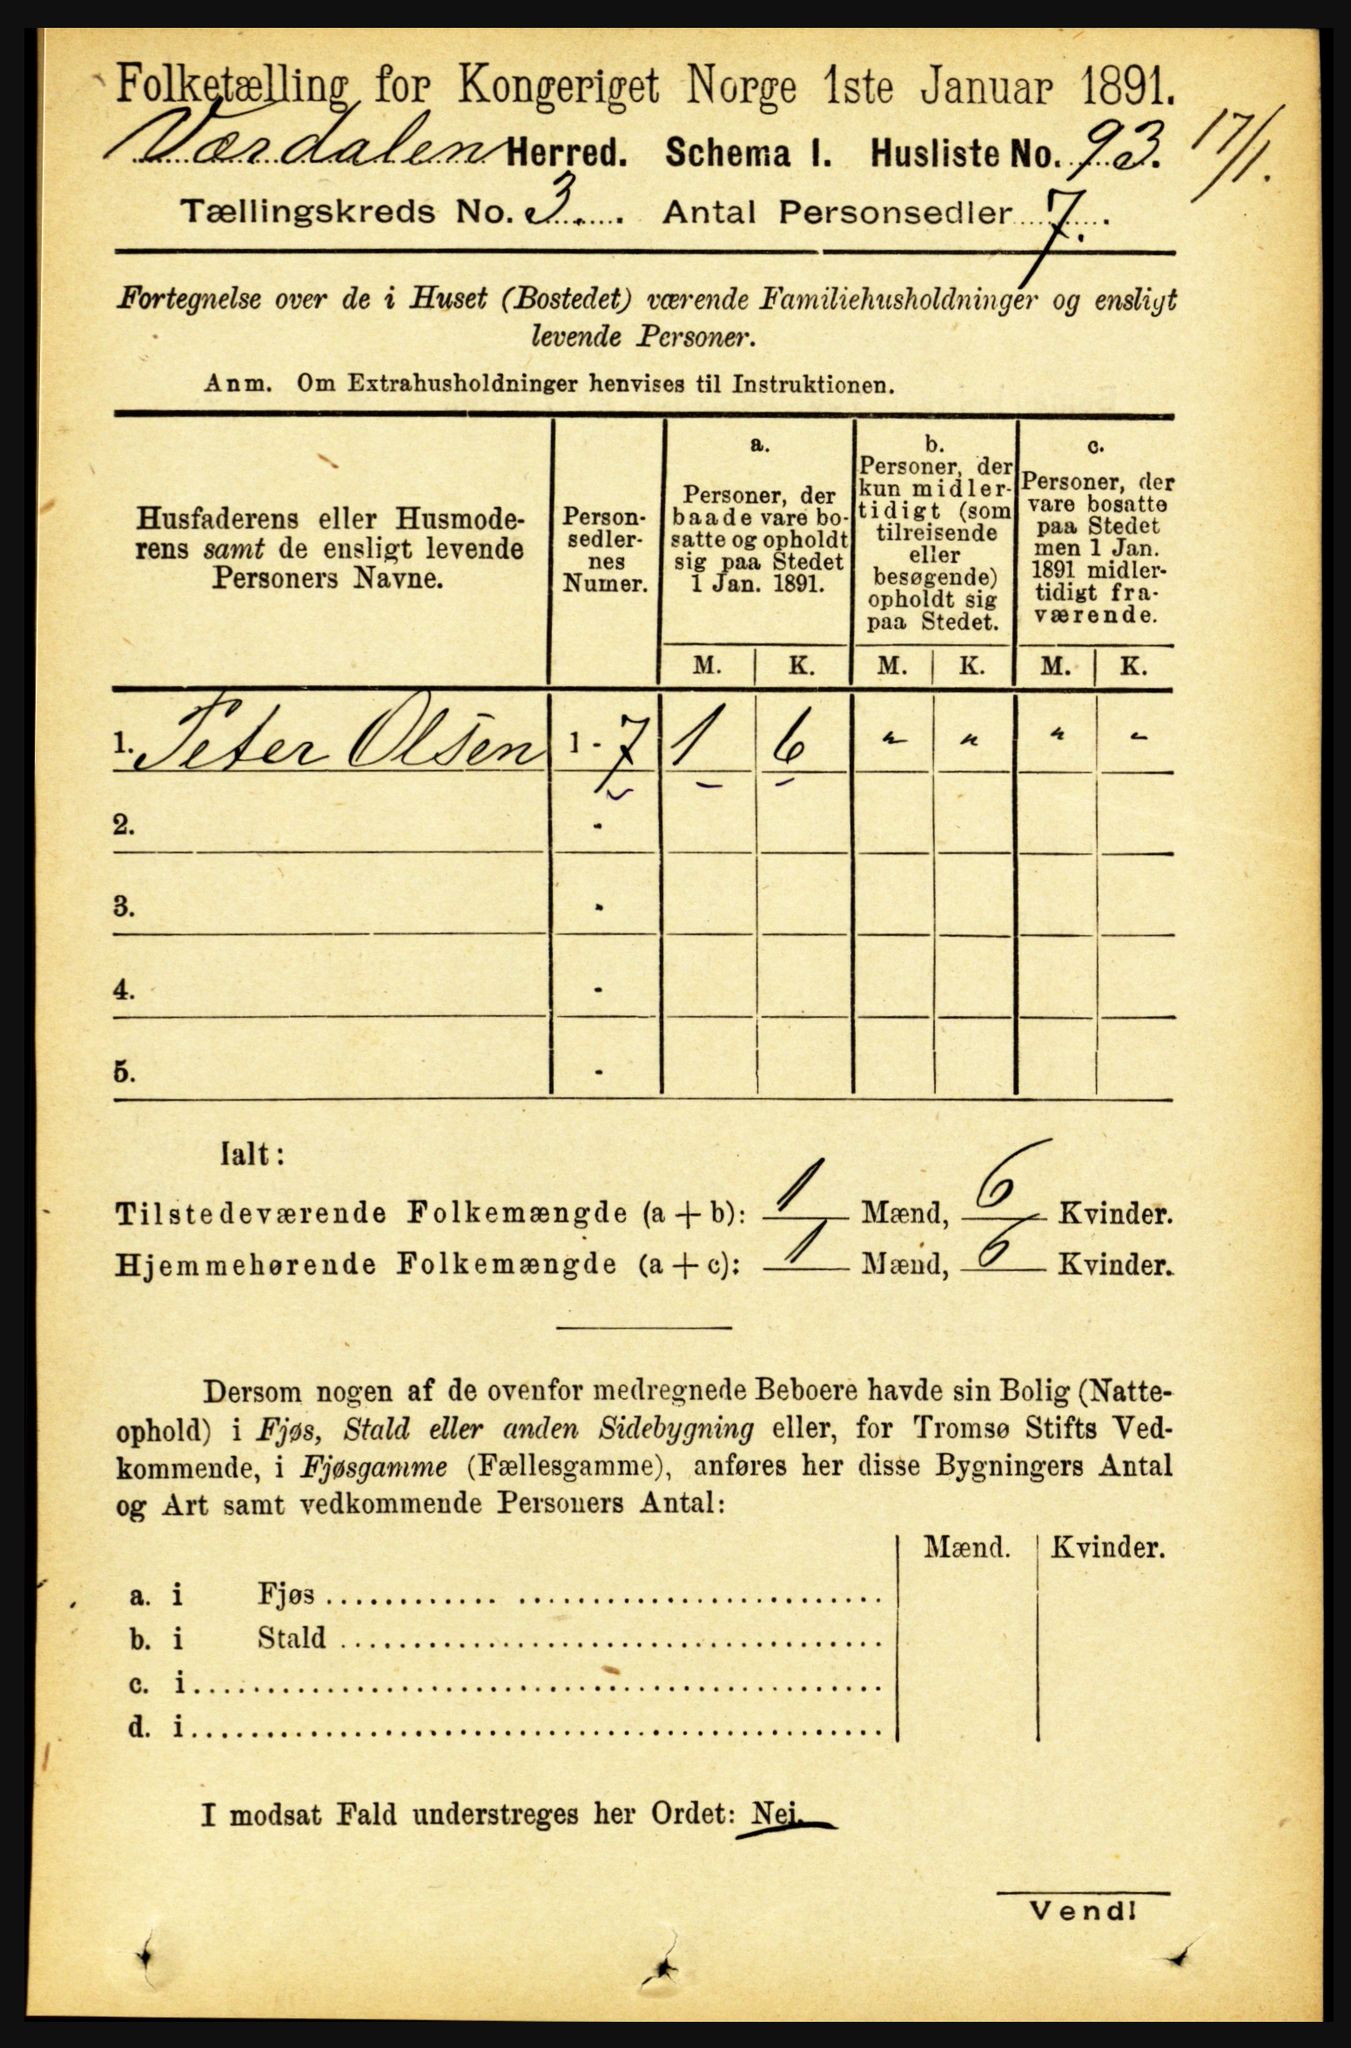 Folketælling for Kongeriget Norge 1ste Januar 1891.
Værdalen Herred. Schema I. Husliste No. 93. 17/1.
Tællingskreds No. 3. Antal Personsedler 7.
Fortegnelse over de i Huset (Bostedet) værende Familiehusholdninger og ensligt
levende Personer.
Anm. Om Extrahusholdninger henvises til Instruktionen.
Husfaderens eller Husmode-
rens samt de ensligt levende
Personers Navne.
Person-
sedler-
nes
Numer.
a.
Personer, der
baade vare bo-
satte og opholdt
sig paa Stedet
1 Jan. 1891.
b.
Personer, der
kun midler-
tidigt (som
tilreisende
eller
besøgende)
opholdt sig
paa Stedet.
c.
Personer, der
vare bosatte
paa Stedet
men 1 Jan.
1891 midler-
tidigt fra-
værende.
M. K. M. K. M. K.
1. Peter Olsen 1 - 7 1 6 " " " "
2. -
3. -
4. -
5. -
Ialt:
Tilstedeværende Folkemængde (a + b): 1 Mænd, 6 Kvinder.
Hjemmehørende Folkemængde (a + c): 1 Mænd, 6 Kvinder.
Dersom nogen af de ovenfor medregnede Beboere havde sin Bolig (Natte-
ophold) i Fjøs, Stald eller anden Sidebygning eller, for Tromsø Stifts Ved-
kommende, i Fjøsgamme (Fællesgamme), anføres her disse Bygningers Antal
og Art samt vedkommende Personers Antal:
Mænd. Kvinder.
a. i Fjøs
b. i Stald
c. i
d. i
I modsat Fald understreges her Ordet: Nei.
Vend!